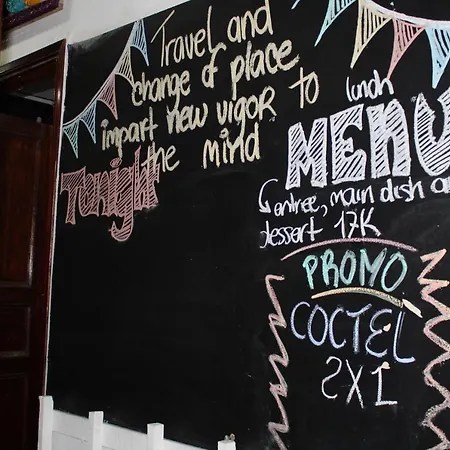 Travel and
change of place
impart new vigor to
the mind
Tonight
lunch
MENU
entree, main dish
dessert 17K
PROMO
COCTEL
2X1